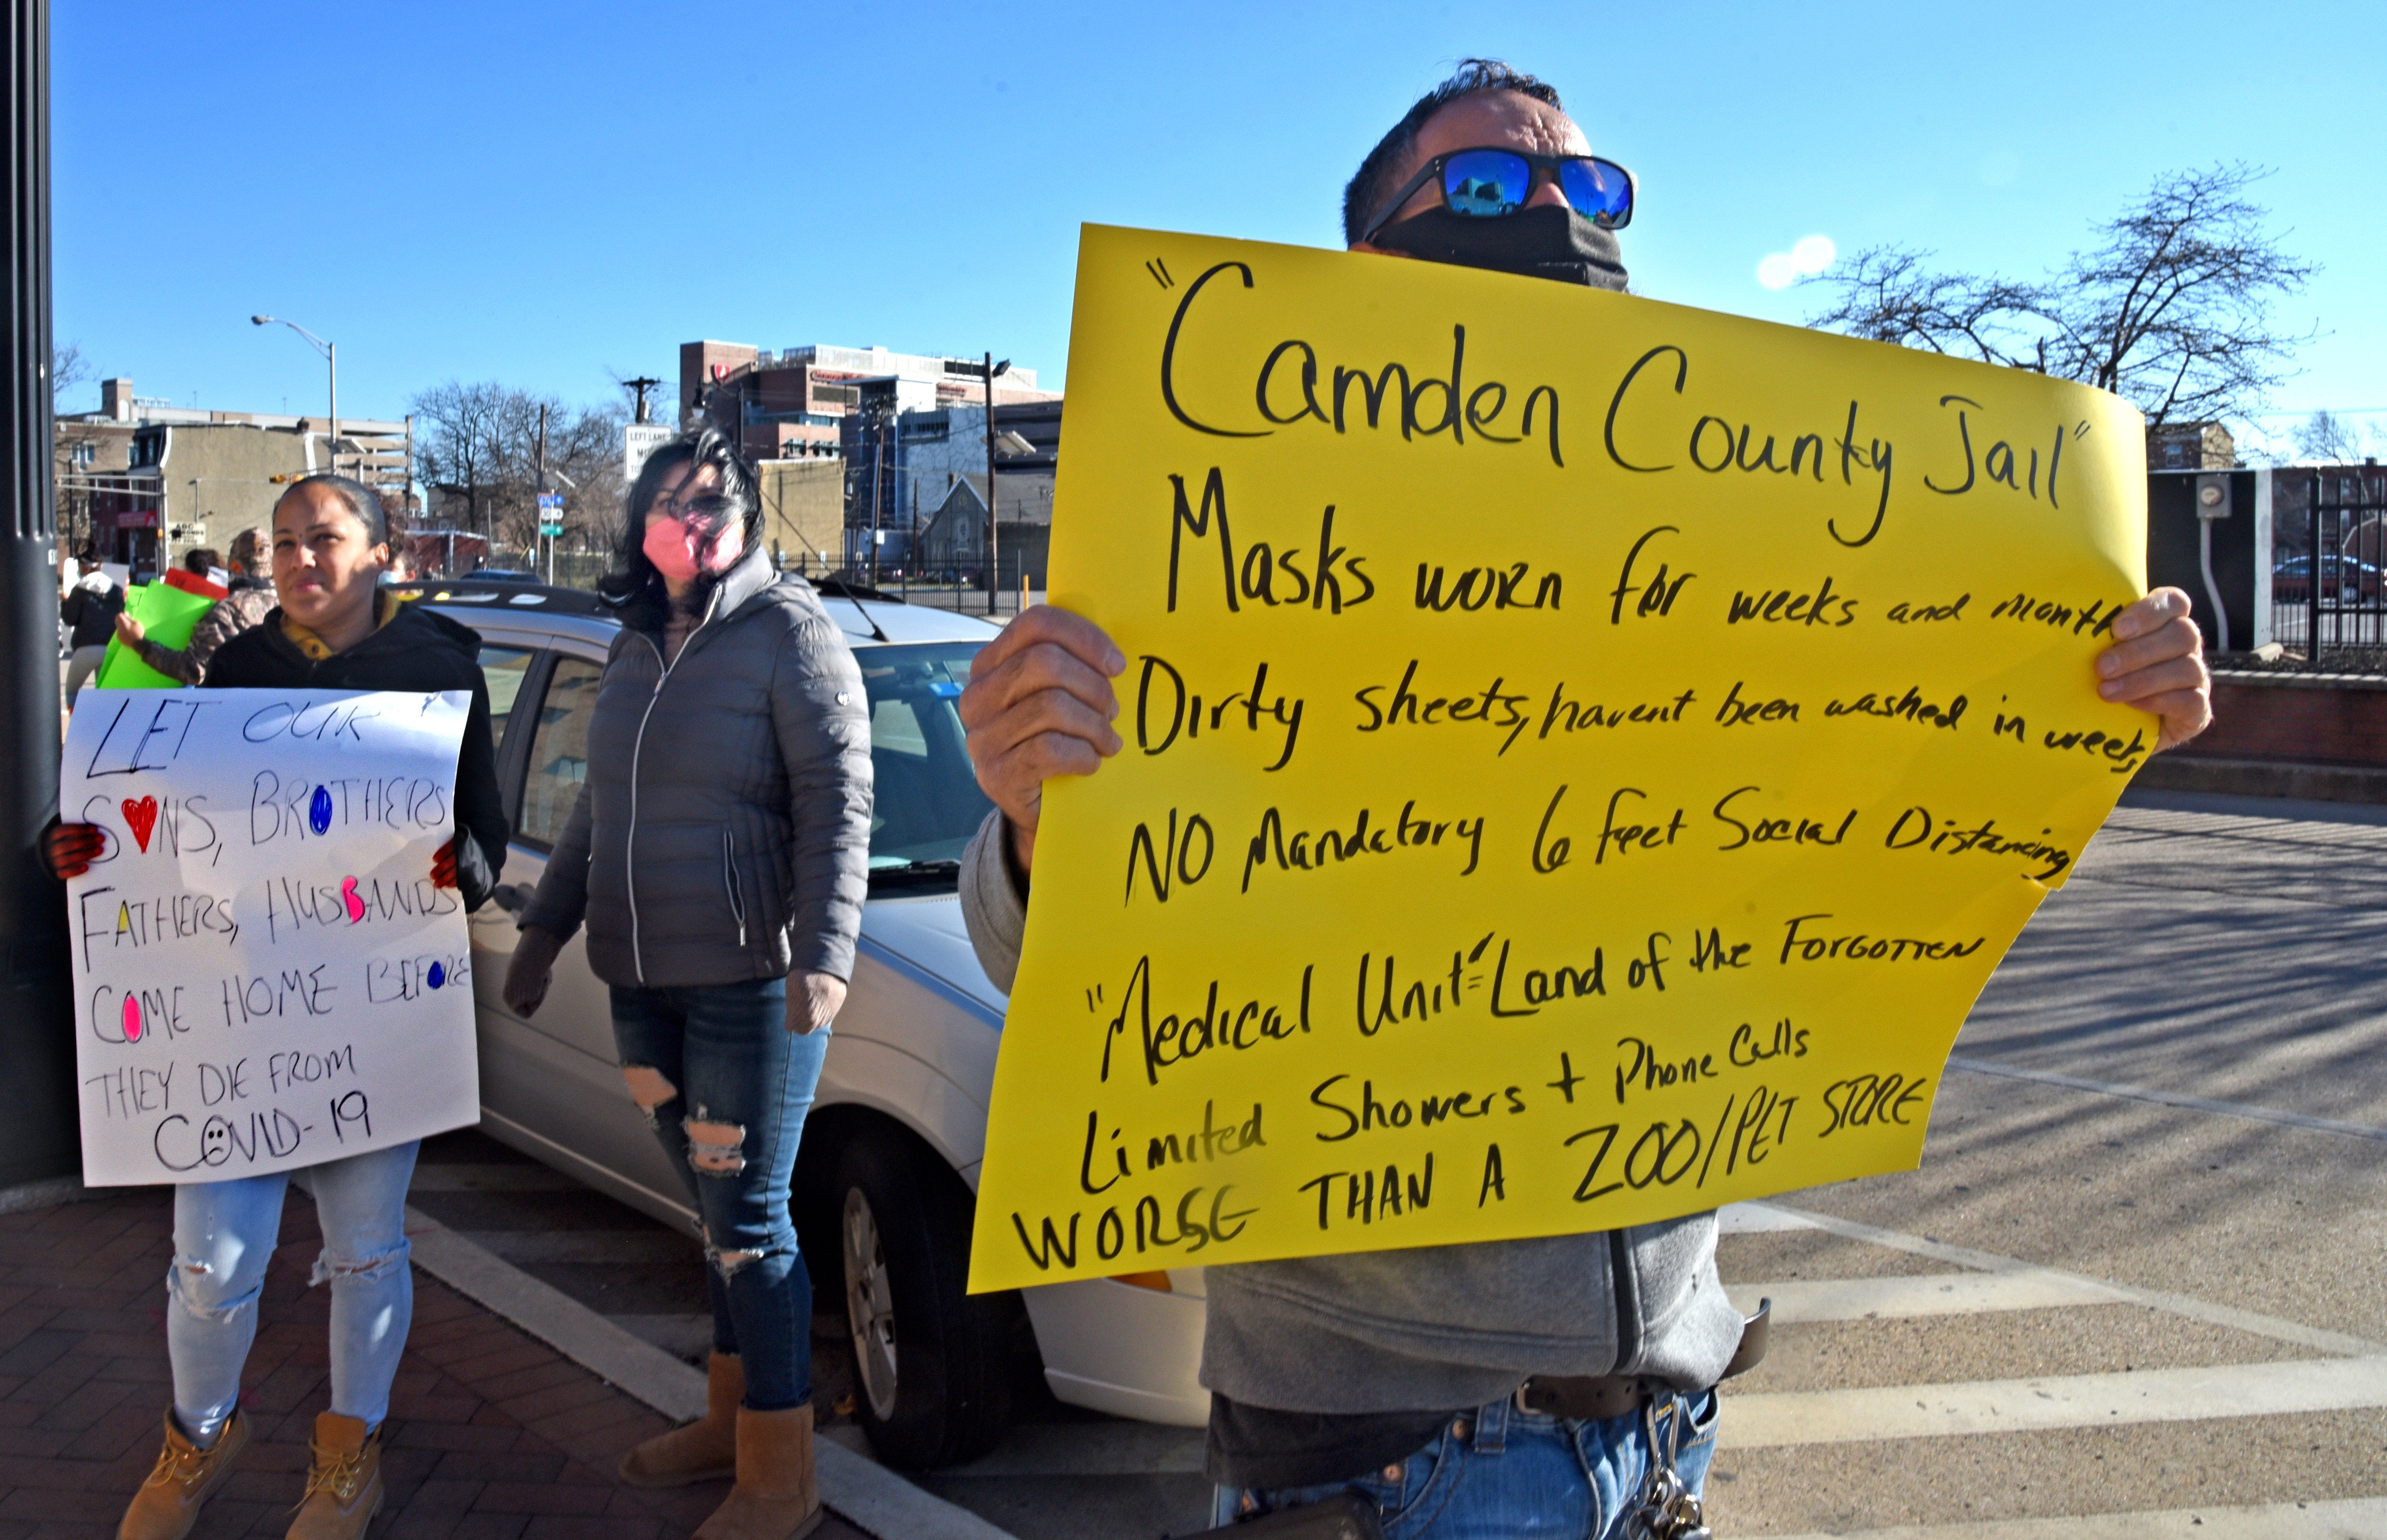 "Camden County Jail"
Masks worn for weeks and month
Dirty sheets, havent been washed in weeks
NO Mandatory 6 feet Social Distancing
"Medical Unit"= Land of the FORGOTTEN
Limited Showers + Phone Calls
WORSE THAN A ZOO/PET STORE
LET OUR
SONS, BROTHERS
FATHERS, HUSBANDS
COME HOME BEFORE
THEY DIE FROM
COVID-19
LEFT LANE